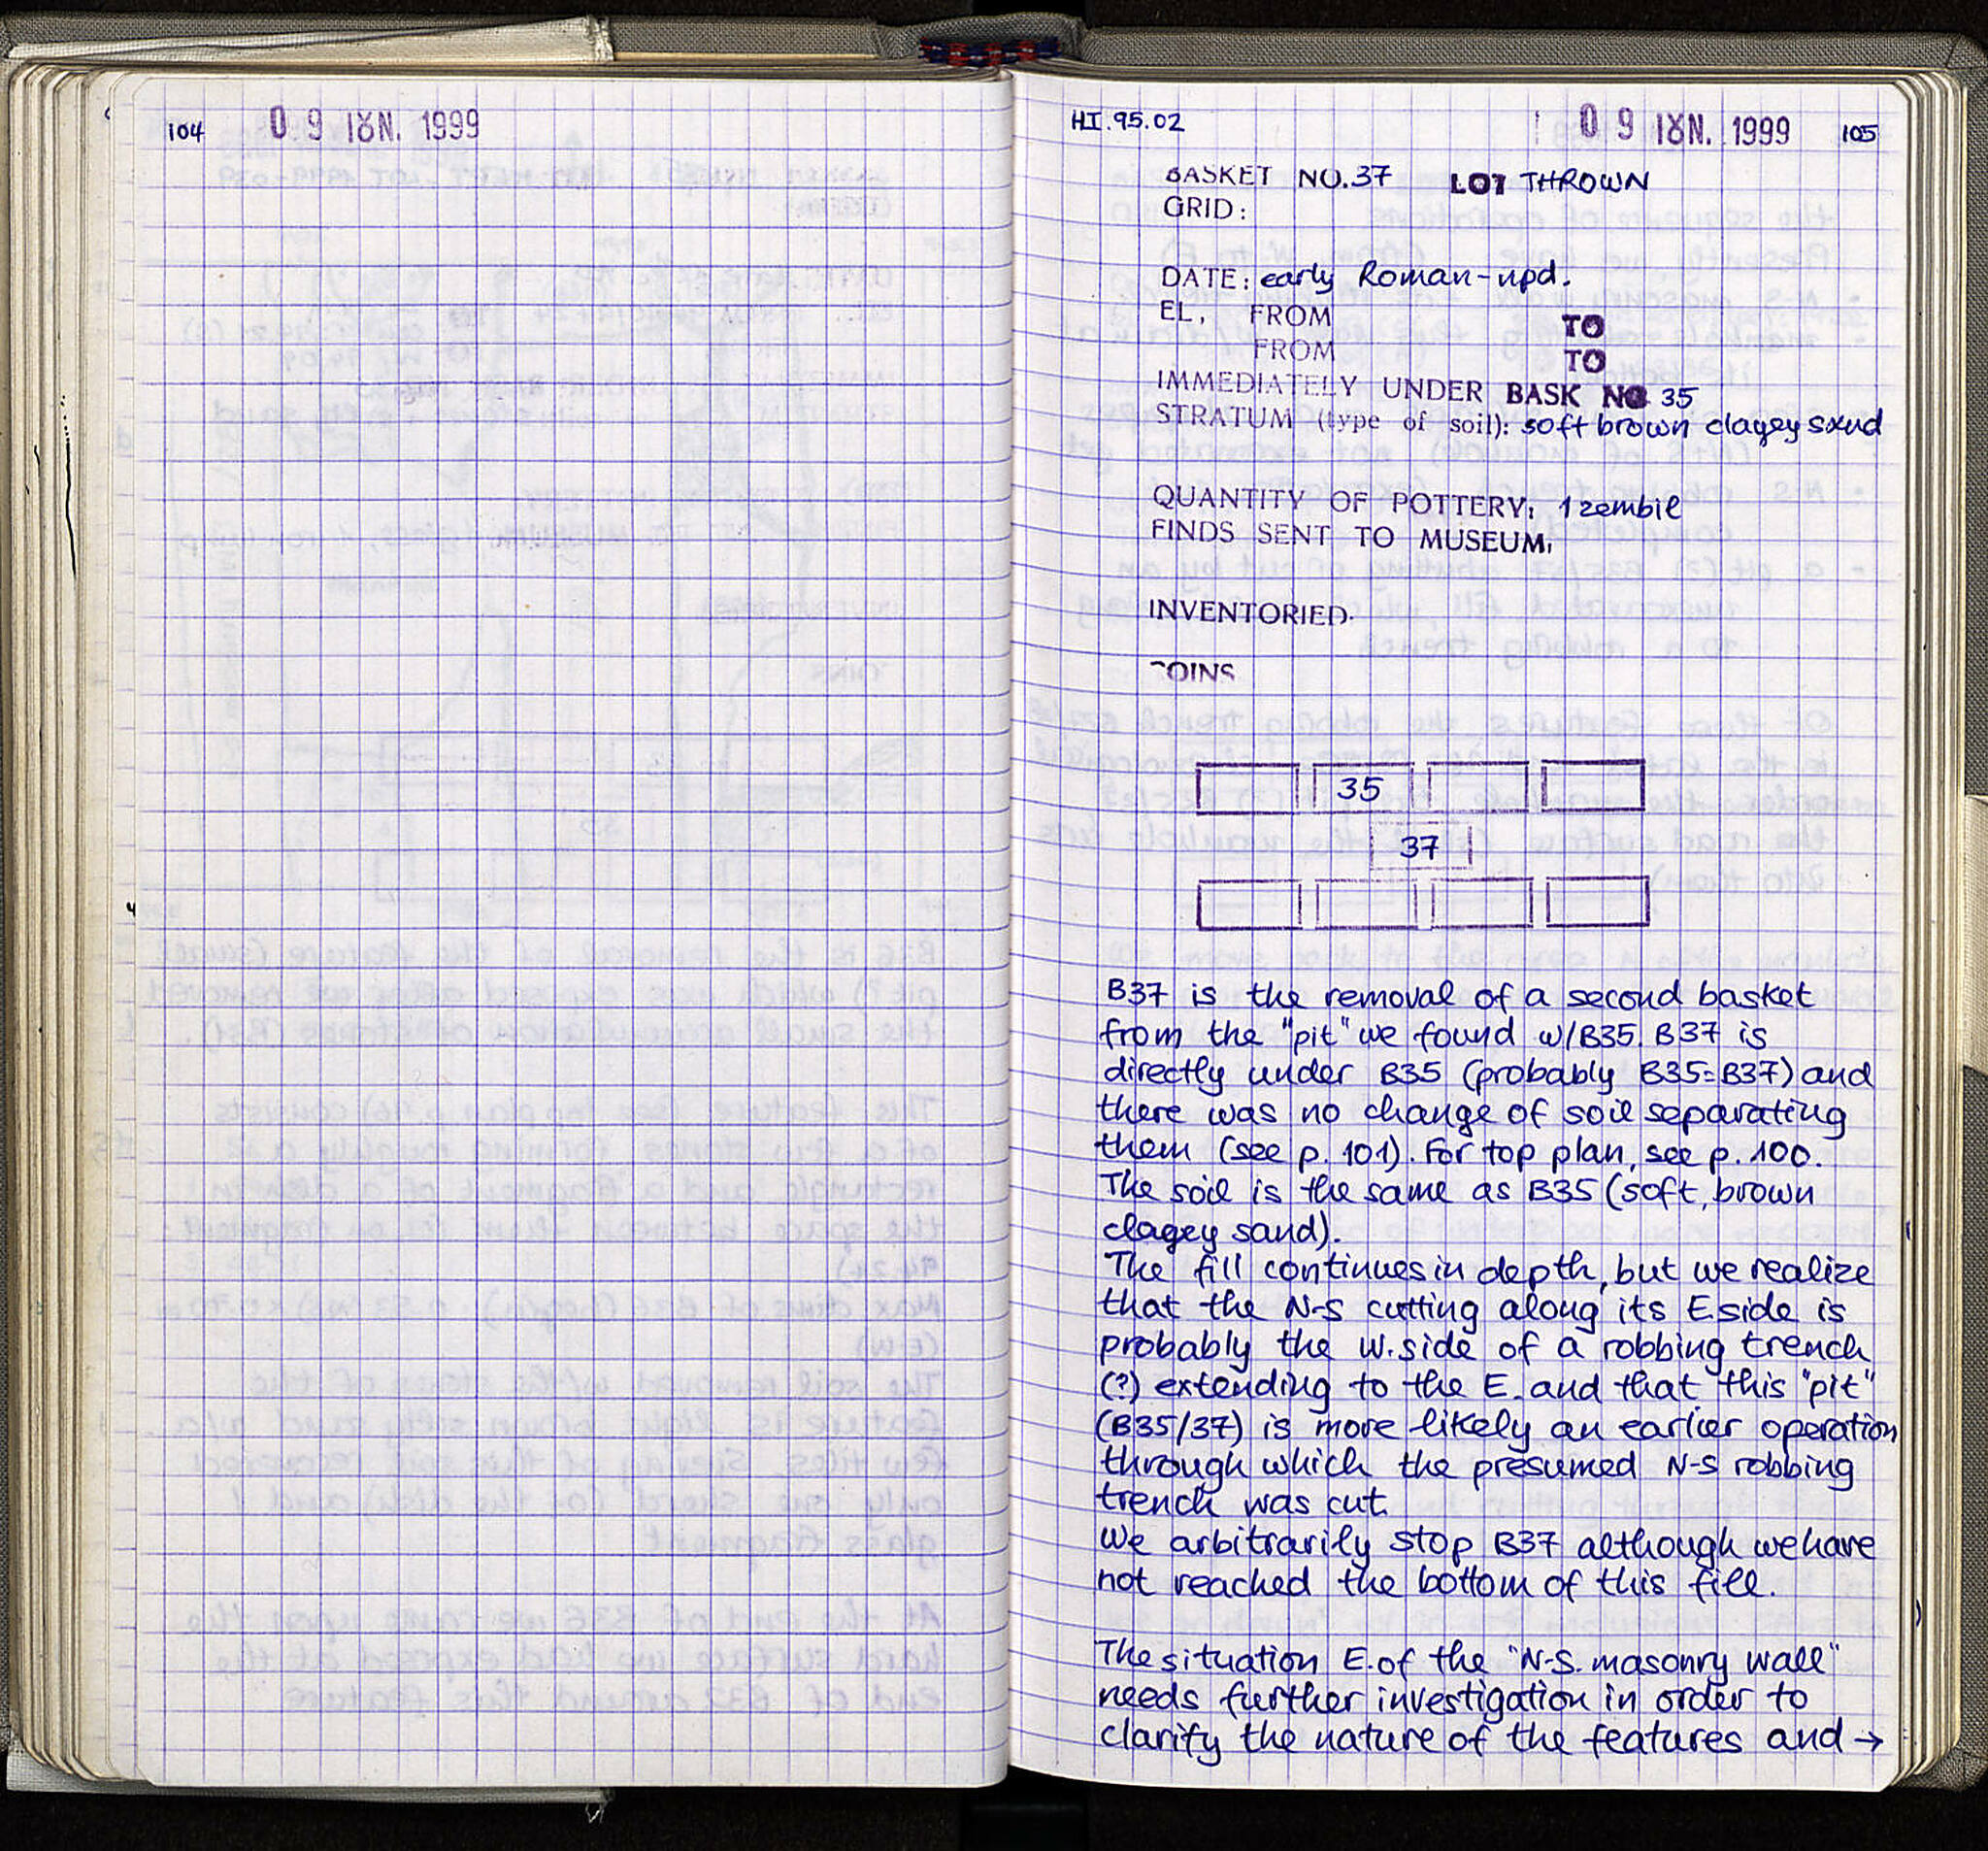 104 09 ΙΟΥΝ. 1999
HI.95.02 09 ΙΟΥΝ. 1999 105
BASKET NO. 37 LOT THROWN
GRID:
DATE: early Roman-npd.
EL, FROM TO
FROM TO
IMMEDIATELY UNDER BASK NO 35
STRATUM (type of soil): soft brown clayey sand
QUANTITY OF POTTERY: 1 zembil
FINDS SENT TO MUSEUM,
INVENTORIED.
COINS
35
37
B37 is the removal of a second basket
from the "pit" we found w/B35. B37 is
directly under B35 (probably B35=B37) and
there was no change of soil separating
them (see p. 101). For top plan, see p. 100.
The soil is the same as B35 (soft, brown
clayey sand).
The fill continues in depth, but we realize
that the N-S cutting along its E side is
probably the W. side of a robbing trench
(?) extending to the E. and that this "pit"
(B35/37) is more likely an earlier operation
through which the presumed N-S robbing
trench was cut.
We arbitrarily stop B37 although we have
not reached the bottom of this fill.
The situation E. of the "N-S. masonry wall"
needs further investigation in order to
clarify the nature of the features and →